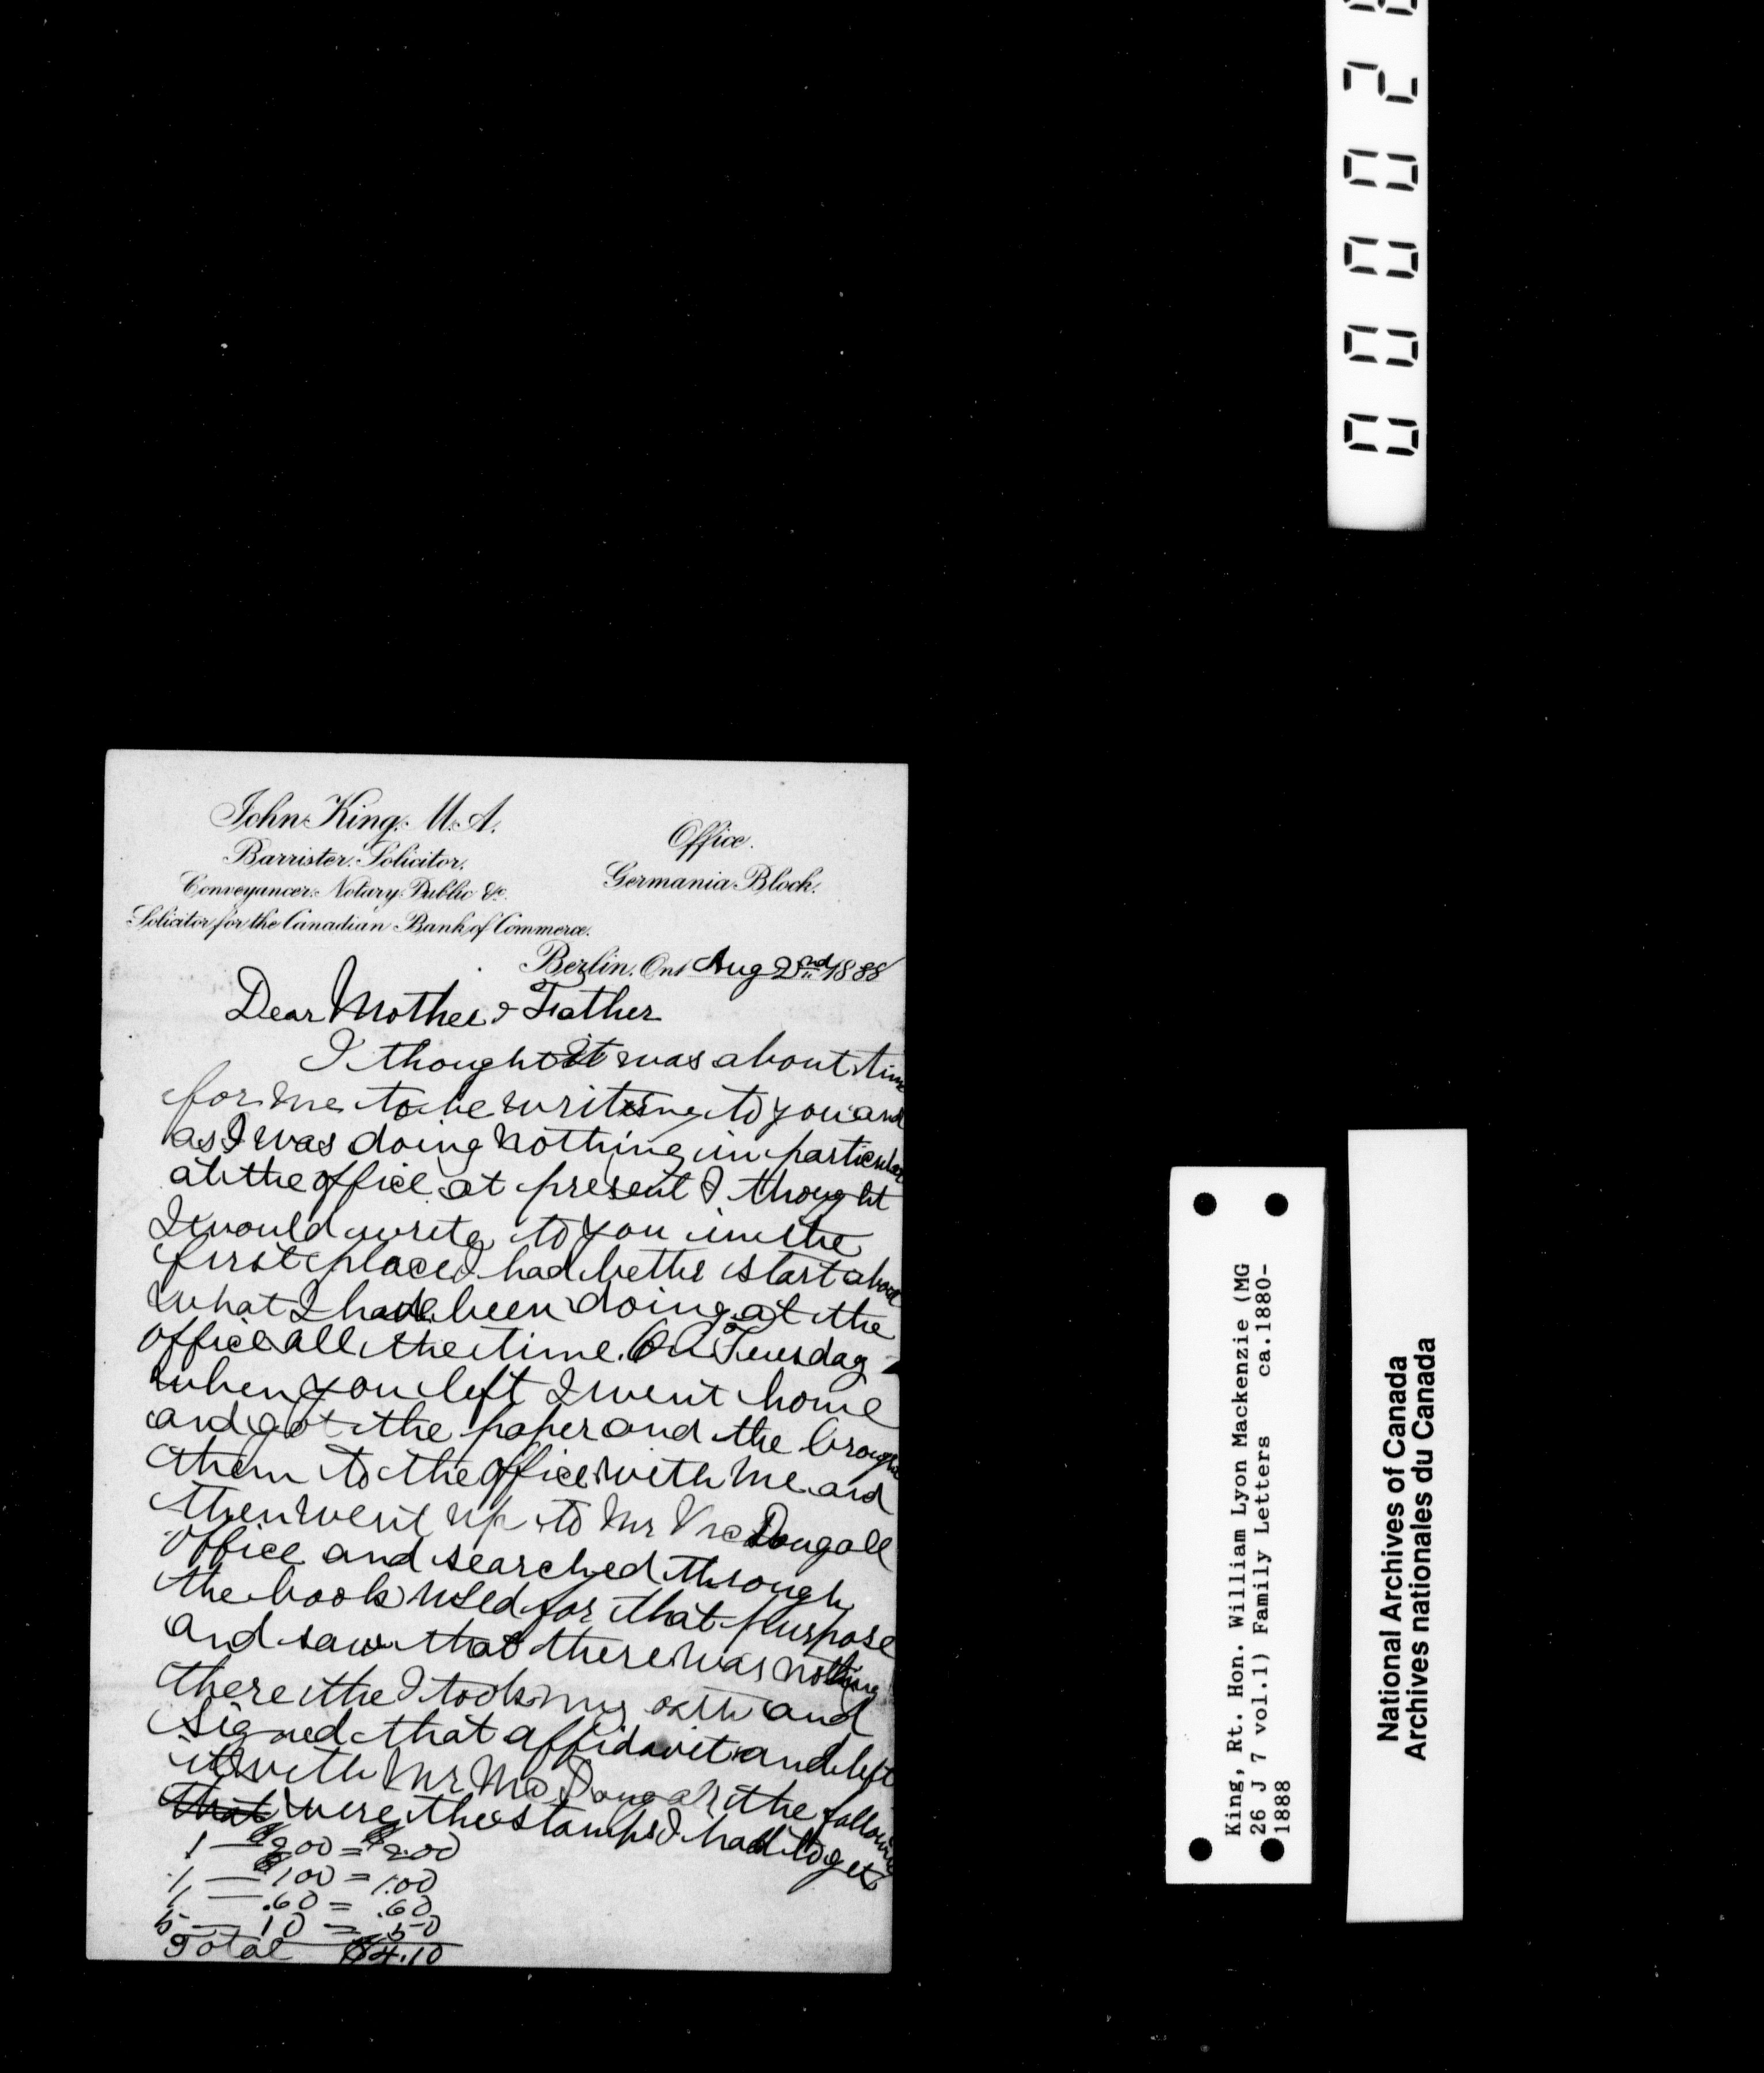 John King, M.A.
Barrister, Solicitor,
Conveyancer, Notary Public &c.
Solicitor for the Canadian Bank of Commerce.
Office.
Germania Block.
Berlin, Ont Aug 2nd 1888
Dear Mother & Father
I thought it was about time
for me to be writing to you and
as I was doing nothing in particular
at the office at present I thought
I would write to you in the
first place I had better start about
what I have been doing at the
office all the time. On Tuesday
when you left I went home
and got the paper and the brought
them to the office with me and
then went up to Mr McDougall
office and searched through
the book used for that purpose
and saw that there was nothing
there the I took my oath and
signed that affidavit and left
it with Mr McDougall the following
that were the stamps I had to get
1 — $2.00 = $2.00
1 — $1.00 = 1.00
1 — .60 = .60
5 — 10 = .50
Total $4.10
King, Rt. Hon. William Lyon Mackenzie (MG
26 J 7 vol.1) Family Letters ca.1880-
1888
National Archives of Canada
Archives nationales du Canada
00002